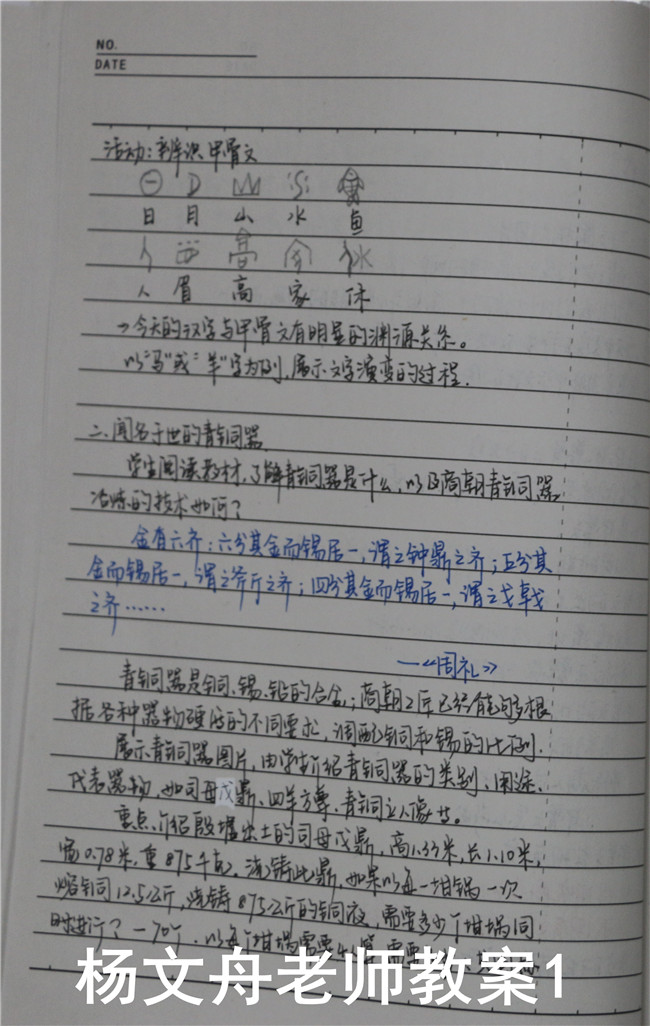 NO.
DATE
活动：辨识甲骨文
日 月 山 水 鱼
人 眉 高 家 休
→今天的汉字与甲骨文有明显的渊源关系。
以"马"或"羊"字为例，展示文字演变的过程．
二、闻名于世的青铜器
学生阅读教材，了解青铜器是什么，以及商朝青铜器
冶炼的技术如何？
金有六齐：六分其金而锡居一，谓之钟鼎之齐；五分其
金而锡居一，谓之斧斤之齐；四分其金而锡居一，谓之戈戟
之齐……
——《周礼》
青铜器是铜、锡、铅的合金；商朝工匠已经能够根
据各种器物硬度的不同要求，调配铜和锡的比例．
展示青铜器图片，由学生介绍青铜器的类别、用途、
代表器物，如司母戊鼎、四羊方尊、青铜立人像等。
重点介绍殷墟出土的司母戊鼎，高1.33米，长1.10米，
宽0.78米，重875千克，浇铸此鼎，如果以每一坩锅一次
熔铜12.5公斤，浇铸875公斤的铜液，需要多少个坩埚同
时进行？—70个．以每个坩埚需要4人算，需要
杨文舟老师教案1